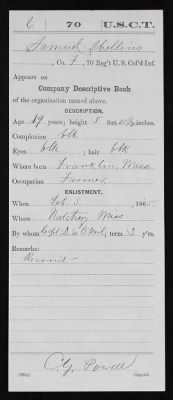 70 U.S.C.T.
Samuel
, Co. F, 70 Reg't U.S. Col'd Inf.
Appears on
Company Descriptive Book
of the organization named above.
DESCRIPTION.
Age 19 years; height 5 feet inches.
Complexion blk
Eyes blk; hair blk
Where born Franklin, Miss
Occupation Farmer
ENLISTMENT.
When Feb. 3, 1865.
Where Natchez Miss
By whom Capt. ; term 3 y'rs.
Remarks:
Recruit
C. G. Powell
Copyist.